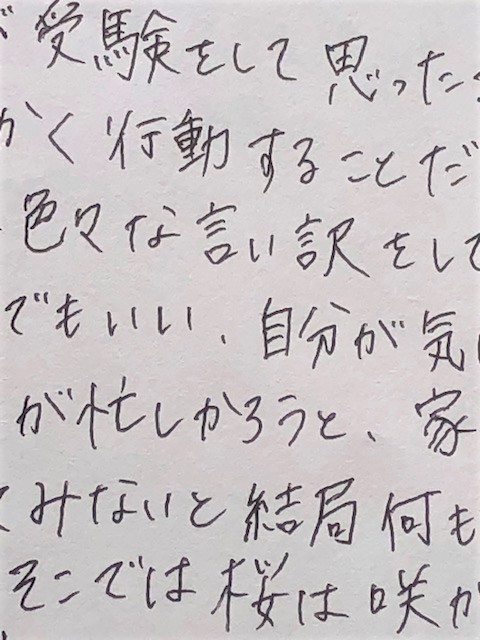 受験をして思った
かく行動することだ
色々な言い訳をして
でもいい、自分が気
が忙しかろうと、家
てみないと結局何も
そこでは桜は咲か